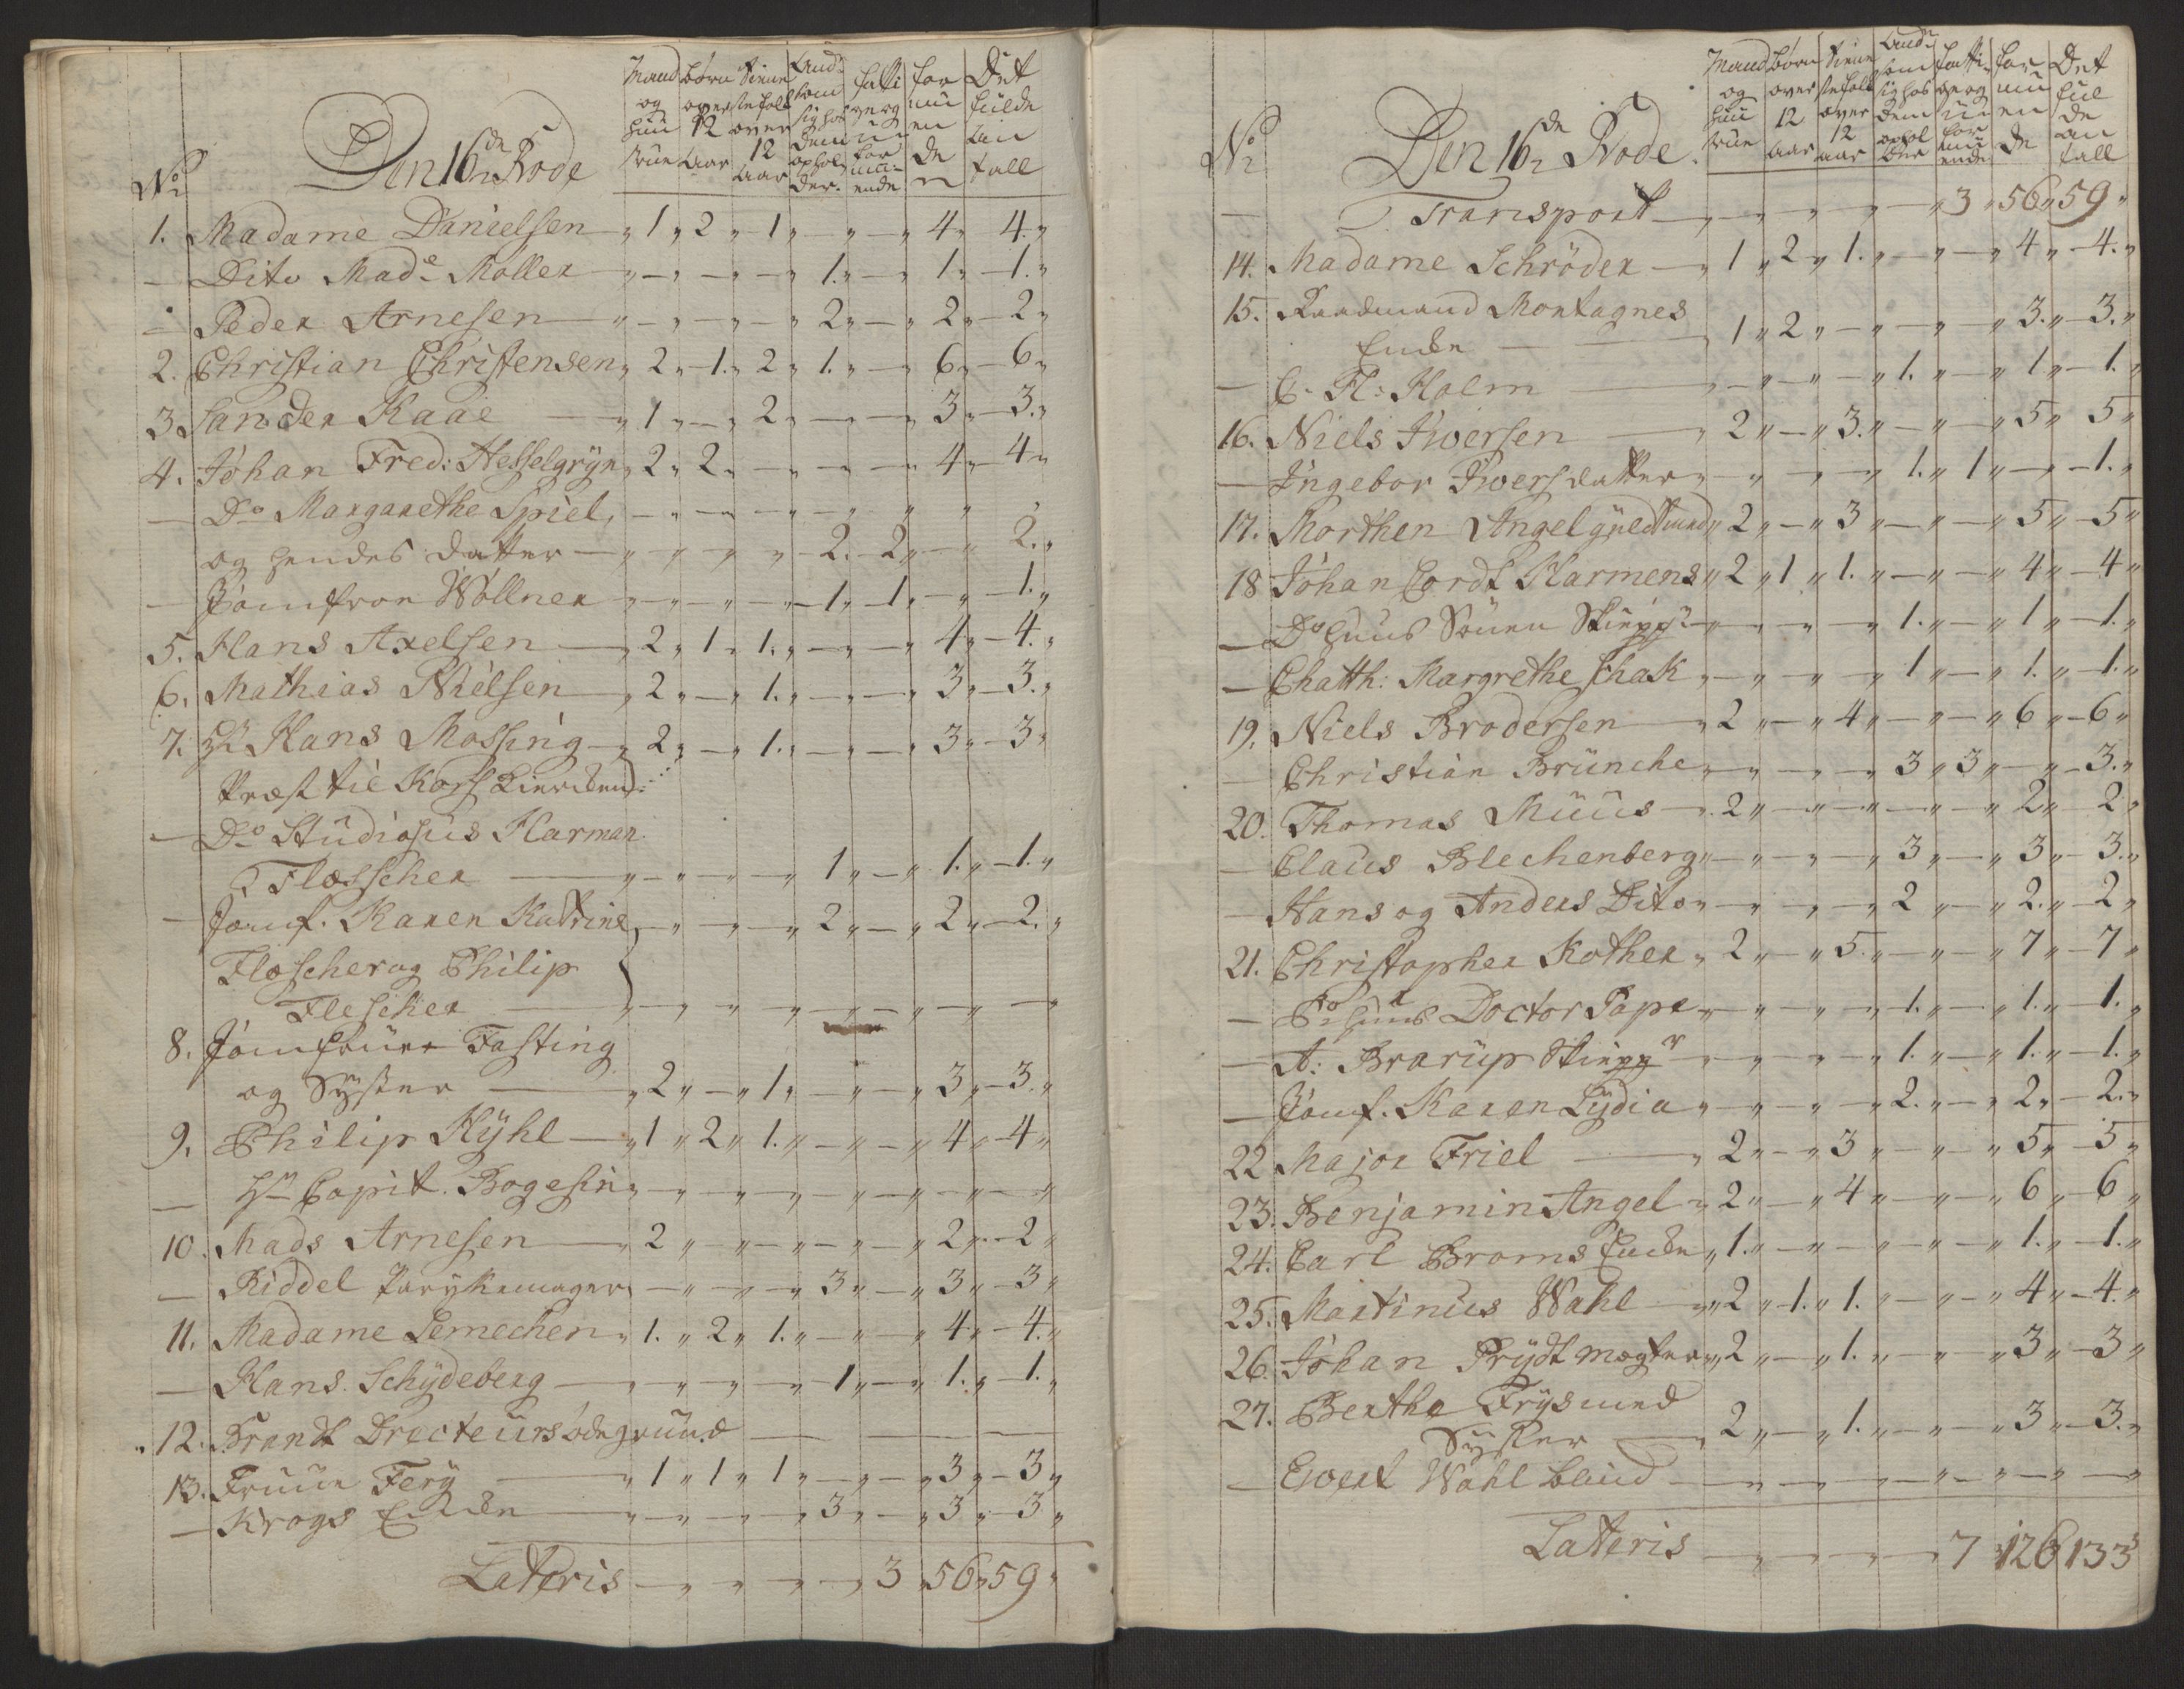 Den 16de Rode
No
Mand og Huustrue
børn over 12 aar
Tienestefolk over 12 aar
Andre som sig hos dem opholder
fattige og uformuende
formuende
Det fulde antall
1. Madame Danielsen „ 1 „ 2 „ 1 „ — „ — „ 4 „ 4 „
— Dito Made Møller „ — „ — „ — „ 1. „ — „ 1 „ 1. „
— Peder Arnesen „ — „ — „ — „ 2 „ — „ 2 „ 2 „
2. Christian Christensen „ 2 „ 1 „ 2 „ 1. „ — „ 6 „ 6 „
3. Sander Kaae — „ 1 „ — „ 2 „ — „ — „ 3 „ 3. „
4. Johan Fred: Hesselgryn „ 2 „ 2 „ — „ — „ — „ 4 „ 4 „
— Do Margarethe Spiel, — „ — „ — „ — „ „ „
og hendes datter — „ „ „ „ 2. 2 „ — „ 2. „
— Jomfroe Wöllner „ — „ — „ — „ 1 „ 1. „ — „ 1. „
5. Hans Axelsen — „ 2 „ 1 „ 1. „ — „ — „ 4 „ 4. „
6. Mathias Nielsen — „ 2 „ — „ 1. „ — „ — „ 3 „ 3. „
7. Hr Hans Mossing „ 2 „ — „ 1. „ — „ — „ 3 „ 3 „
Præst til Kors Kierken
— Do Studiosus Harman
Flæsscher — „ — „ — „ — „ 1 „ — „ 1. „ 1. „
— Jomf. Karen Katrine „ — „ — „ — „ 2 „ — „ 2 „ 2. „
Floscher og Philip
Flescher — „ — „ — „ — „ — „ — „ — „ —
8. Jomfrue Fasting
og Syster — „ 2 „ — „ 1 „ — „ — „ 3 „ 3. „
9. Philip Kyhl — „ 1 „ 2 „ 1. „ — „ — „ 4 „ 4 „
— Hr Capit. Bogesin „ — „ — „ — „ — „ — „ — „ — „
10. Mads Arnesen — „ 2 „ — „ — „ — „ — „ 2 „ 2 „
— Riddel Parykemager „ — „ — „ — „ 3 „ — „ 3 „ 3 „
11. Madame Lemechen „ 1. „ 2 „ 1. „ — „ — „ 4 „ 4. „
— Hans Schydeberg — „ — „ — „ — „ 1 „ — „ 1. „ 1. „
12. Brandt Drecteurs øde grund — — — —
13. Fruue Fery — „ 1 „ 1 „ 1 „ — „ — „ 3 „ 3 „
— Krogs Encke — „ — „ — „ — „ 3 „ — „ 3 „ 3 „
Lateris — „ — „ — „ — „ 3 „ 56 „ 59 „
No
Den 16de Rode.
Mand og Huustrue
børn over 12 aar
Tienestefolk over 12 aar
Andre som sig hos dem opholder
fattige og uformuende
formuende
Det fulde antall
— Transport — „ — „ — „ — „ 3 „ 56 „ 59 „
14. Madame Schröder — „ 1 „ 2 „ 1. „ — „ — „ 4 „ 4. „
15. Raadmand Montagnes
Encke — „ 1 „ 2 „ — „ — „ — „ 3. „ 3. „
— C. Fl: Holm — „ — „ — „ — „ 1. „ — „ 1 „ 1. „
16. Niels Iwersen — „ 2 „ — „ 3. „ — „ — „ 5 „ 5 „
— Ingebor Iwersdatter „ — „ — „ — „ 1. „ 1 „ — „ 1. „
17. Morthen Angel gyldtmed „ 2 „ — „ 3 „ — „ — „ 5 „ 5 „
18 Johan Cordt Harmens „ 2 „ 1 „ 1. „ — „ — „ 4 „ 4 „
— Do huus Sönen Skiepp — „ — „ — „ — „ 1. „ — „ 1 „ 1. „
— Chatth: Margrethe Schak „ — „ — „ — „ 1 „ — „ 1. „ 1. „
19. Niels Brodersen „ 2 „ — „ 4 „ — „ — „ 6 „ 6 „
— Christian Brünche „ — „ — „ — „ 3 „ 3 „ — „ 3. „
20. Thomas Muus — „ 2 „ — „ — „ — „ — „ 2 „ 2 „
— Claus Blechenberg „ — „ — „ — „ 3 „ — „ 3 „ 3. „
— Hans og Anders Dito „ — „ — „ — „ 2 „ — „ 2. „ 2 „
21. Christopher Kother „ 2 „ — „ 5. „ — „ — „ 7 „ 7 „
— Do huus Doctor Pape „ — „ — „ — „ 1. „ — „ 1. „ 1. „
— A: Brarup Skiepp „ — „ — „ — „ 1. „ — „ 1. „ 1. „
— Jomf. Karen Lydia „ — „ — „ — „ 2. „ — „ 2 „ 2. „
22 Major Friel — „ 2 „ — „ 3 „ — „ — „ 5 „ 5 „
23. Benjamin Angel „ 2 „ — „ 4 „ — „ — „ 6 „ 6 „
24. Carl Broms Encke „ 1. „ — „ — „ — „ — „ 1. „ 1. „
25. Martinus Wahl „ 2 „ 1. „ 1. „ — „ — „ 4 „ 4. „
26. Johan Prydt mægter „ 2 „ — „ 1. „ — „ — „ 3 „ 3 „
27. Berthe Frys med
Syster — „ 2 „ — „ 1. „ — „ — „ 3 „ 3. „
— Ewert Wahl — „ — „ — „ — „ — „ — „ —
Lateris — „ — „ — „ — „ 7 126 133